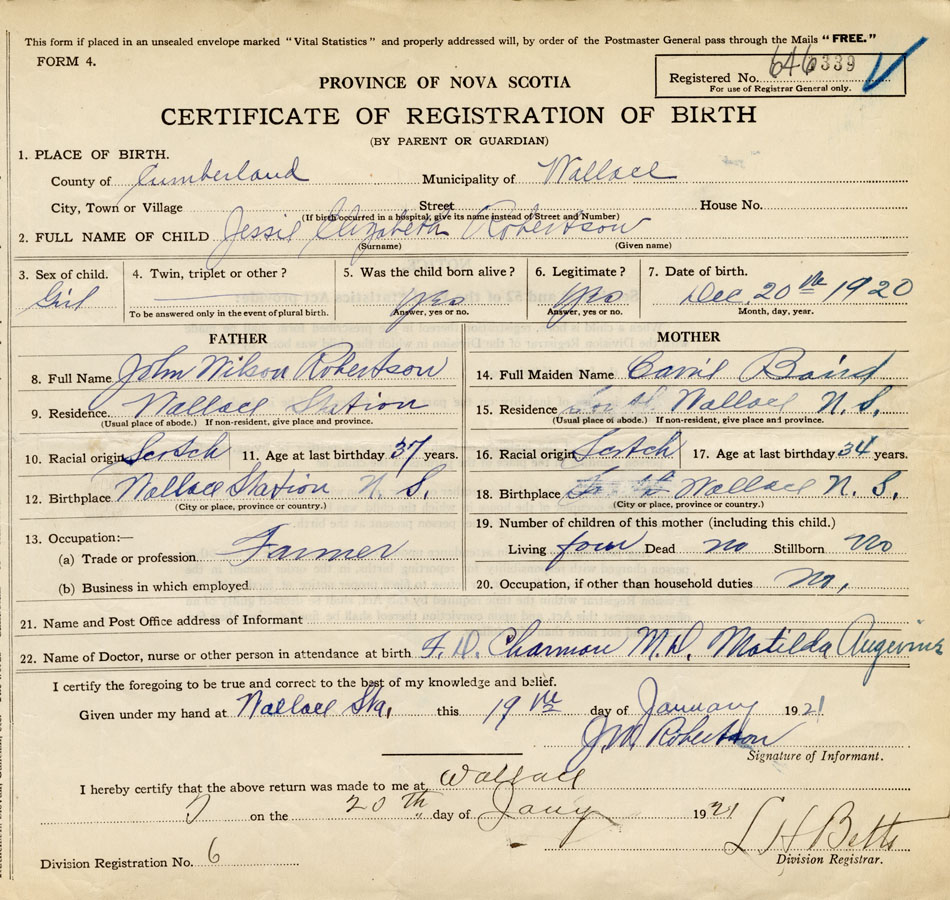 This form if placed in an unsealed envelope marked "Vital Statistics" and properly addressed will, by order of the Postmaster General pass through the Mails "FREE."
FORM 4.
Registered No. 646339
For use of Registrar General only.
PROVINCE OF NOVA SCOTIA
CERTIFICATE OF REGISTRATION OF BIRTH
(BY PARENT OR GUARDIAN)
1. PLACE OF BIRTH.
County of Cumberland Municipality of Wallace
City, Town or Village Street House No.
(If birth occurred in a hospital, give its name instead of Street and Number)
2. FULL NAME OF CHILD Jessie Elizabeth Robertson
(Surname) (Given name)
3. Sex of child. 4. Twin, triplet or other? 5. Was the child born alive? 6. Legitimate? 7. Date of birth.
Girl Yes Yes Dec. 20th 1920
To be answered only in the event of plural birth. Answer, yes or no. Answer, yes or no. Month, day, year.
FATHER MOTHER
8. Full Name John Wilson Robertson 14. Full Maiden Name Baird
9. Residence. Wallace Station 15. Residence Wallace N. S.
(Usual place of abode.) If non-resident, give place and province. (Usual place of abode.) If non-resident, give place and province.
10. Racial origin Scotch 11. Age at last birthday 37 years. 16. Racial origin Scotch 17. Age at last birthday 34 years.
12. Birthplace Wallace Station N. S. 18. Birthplace Wallace N. S.
(City or place, province or country.) (City or place, province or country.)
13. Occupation:— 19. Number of children of this mother (including this child.)
(a) Trade or profession Farmer Living four Dead no Stillborn no
(b) Business in which employed 20. Occupation, if other than household duties no,
21. Name and Post Office address of Informant
22. Name of Doctor, nurse or other person in attendance at birth F. D. Charman M.D. Matilda Angevine
I certify the foregoing to be true and correct to the best of my knowledge and belief.
Given under my hand at Wallace Sta, this 19th day of January 1921
J. W. Robertson
Signature of Informant.
I hereby certify that the above return was made to me at Wallace
on the 20th day of Jany 1921
L H Betts
Division Registrar.
Division Registration No. 6